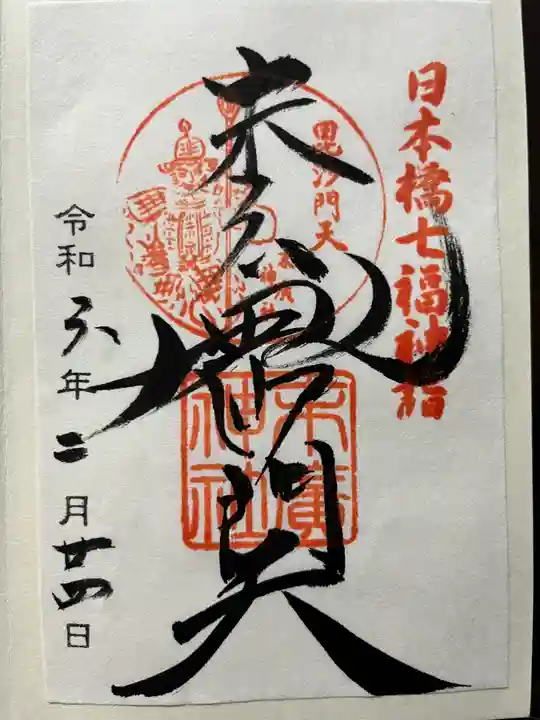 日本橋七福神詣
毘沙門天
末廣神社
末廣
神社
門天
令和六年二月廿四日